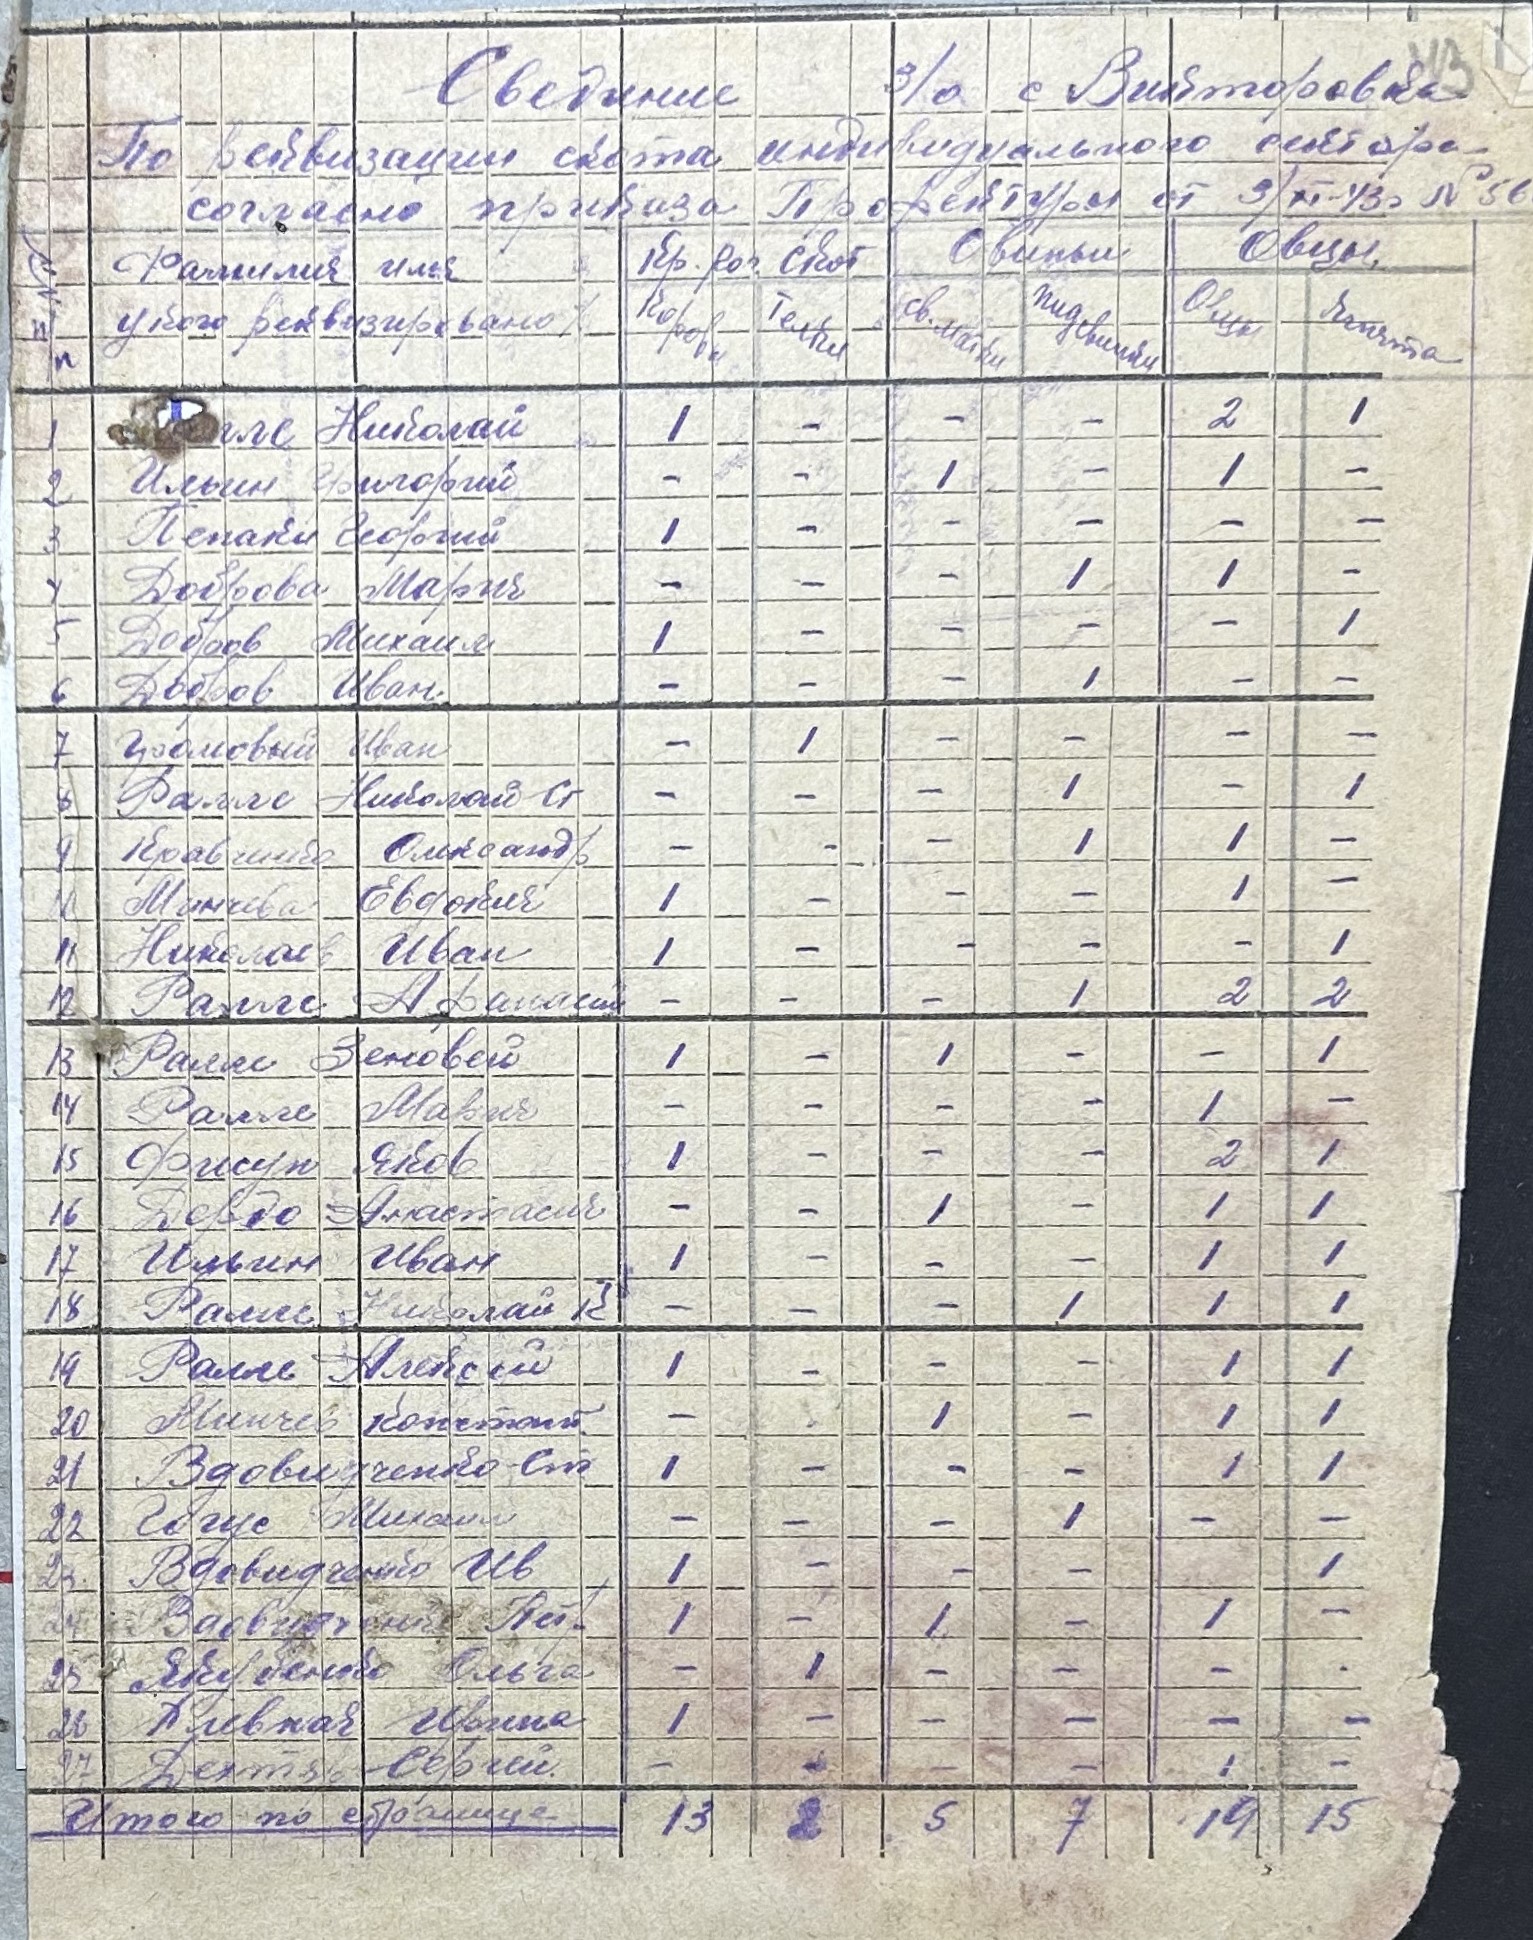 43
Сведение з/о с Викторовка
По реквизации скота индивидуального сектора
согласно приказа Профектуры от 3/XI-43г № 56
№№ Фамилия имя Кр. рог. скот Свиньи Овцы
п/п у кого реквизировано Коровы Телки св. матки подсвинки Овцы Ягнята
1 Николай 1 - - - 2 1
2 Ильин Григорий - - 1 - 1 -
3 Пепаки Георгий 1 - - - - -
4 Доброва Мария - - - 1 1 -
5 Добров Михаил 1 - - - - 1
6 Добров Иван - - - 1 - -
7 Иван - 1 - - - -
8 Ралле Николай Ст - - - 1 - 1
9 Кравченко Олександр - - - 1 1 -
10 Минчева Евдокия 1 - - - 1 -
11 Николаев Иван 1 - - - - 1
12 Ралле Афанасий - - - 1 2 2
13 Ралле Зеновей 1 - 1 - - 1
14 Ралле Мария - - - - 1 -
15 Фисун Яков 1 - - - 2 1
16 Дордо Анастасия - - 1 - 1 1
17 Ильин Иван 1 - - - 1 1
18 Ралле Николай К - - - 1 1 1
19 Ралле Алексей 1 - - - 1 1
20 Минчев Констант. - - 1 - 1 1
21 Вдовидченко Ст 1 - - - 1 1
22 Гогус Михаил - - - 1 - -
23 Вдовидченко Ив 1 - - - 1
24 Вдовидченко Пет. 1 - 1 - 1 -
25 Якубенко Ольга - 1 - - - -
26 Плевная Ирина 1 - - - - -
27 Сергей - - - - 1 -
Итого по странице 13 2 5 7 19 15